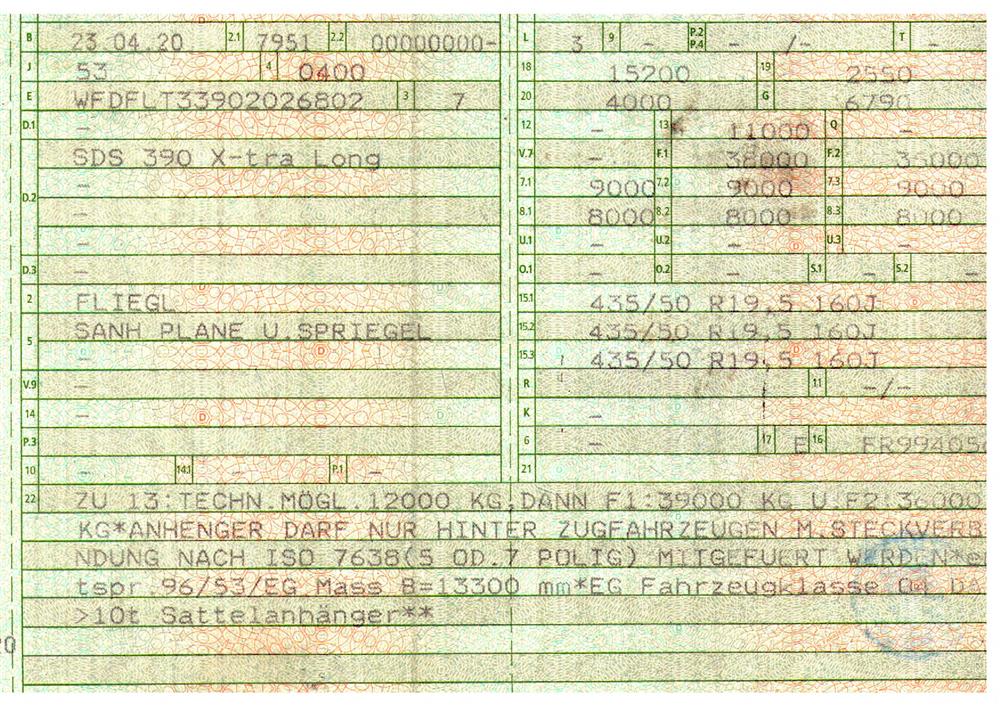 B 23.04.20 2.1 7951 2.2 00000000- L 3 9 - P.2 P.4 - /- T -
J 53 4 0400 18 15200 19 2550
E WFDFLT33902026802 3 7 20 4000 G 6790
D.1 - 12 - 13 11000 Q -
SDS 390 X-tra Long V.7 - F.1 38000 F.2 35000
D.2 - 7.1 9000 7.2 9000 7.3 9000
- 8.1 8000 8.2 8000 8.3 8000
- U.1 - U.2 - U.3 -
D.3 - O.1 - O.2 - S.1 - S.2 -
2 FLIEGL 15.1 435/50 R19,5 160J
5 SANH PLANE U.SPRIEGEL 15.2 435/50 R19,5 160J
- 15.3 435/50 R19,5 160J
V.9 - R 11 -/-
14 - K -
P.3 6 - 17 E 16 FR99405
10 - 14.1 - P.1 - 21
22 ZU 13:TECHN.MÖGL.12000 KG,DANN F1:39000 KG U F2:36000
KG*ANHENGER DARF NUR HINTER ZUGFAHRZEUGEN M.STECKVERB
NDUNG NACH ISO 7638(5 OD.7 POLIG) MITGEFUERT WERDEN*e
tspr.96/53/EG Mass B=13300 mm*EG Fahrzeugklasse O4 bA
>10t Sattelanhänger**